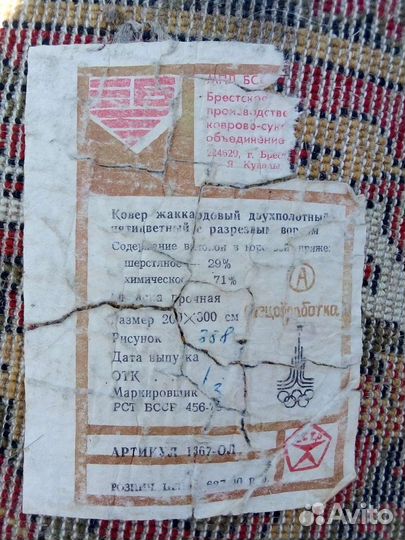 Брестское
производстве
коврово-сук
объединение
224629, г. Брес
Ковер жаккардовый двухполотный
пятицветный с разрезным ворсом
Содержание волокон в ворсовой пряже:
шерстяное — 29%
химическое 71%
прочная
Размер 200×300 см
Рисунок 358
Дата выпуска
ОТК 12
Маркировщик
РСТ БССР 456-
А
АРТИКУЛ 1367-ОЛ
РОЗНИЧ.
Avito